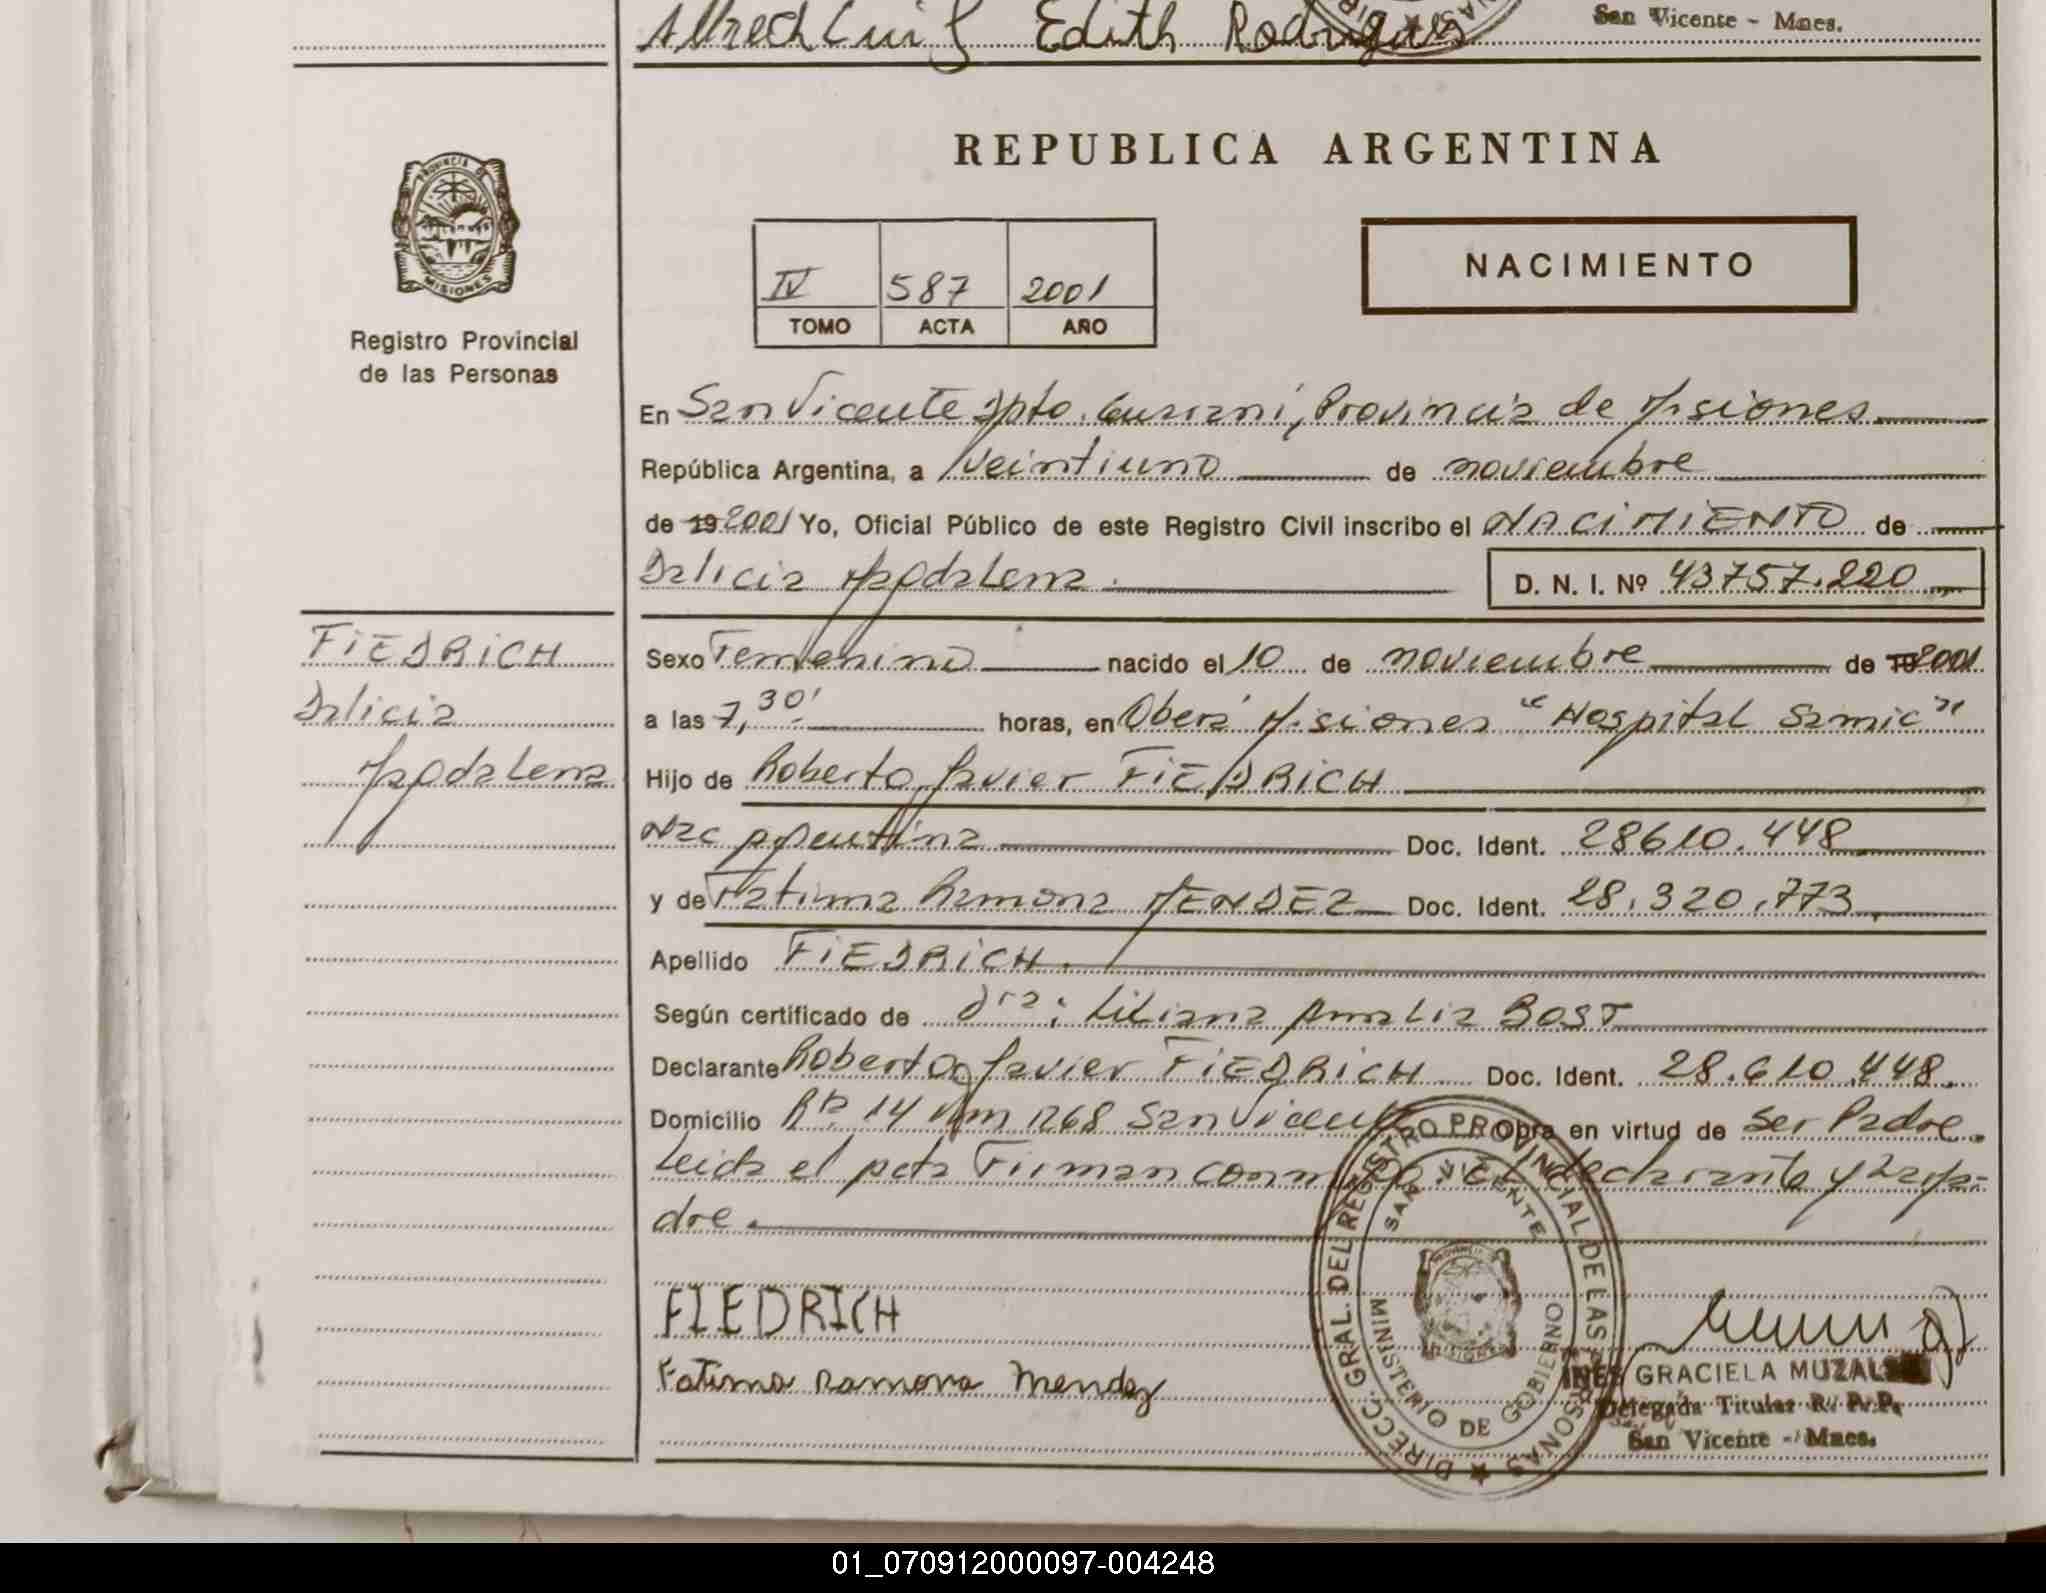 Edith Rodrigues
San Vicente - Mnes.
REPUBLICA ARGENTINA
PROVINCIA DE
MISIONES
Registro Provincial
de las Personas
IV 587 2001
TOMO ACTA AÑO
NACIMIENTO
En San Vicente Dpto. Guaraní, Provincia de Misiones
República Argentina, a veintiuno de noviembre
de 19 2001 Yo, Oficial Público de este Registro Civil inscribo el NACIMIENTO de
Dalicia Magdalena. D. N. I. Nº 43757.220
FIEDRICH
Dalicia
Magdalena
Sexo Femenino nacido el 10 de noviembre de 19 2001
a las 7,30' horas, en Oberá Misiones "Hospital Samic"
Hijo de Roberto Javier FIEDRICH
Nac Argentina Doc. Ident. 28610.448
y de Fatima Ramona MENDEZ Doc. Ident. 28.320.773
Apellido FIEDRICH.
Según certificado de dra: Liliana Amalia BOST
Declarante Roberto Javier FIEDRICH Doc. Ident. 28.610.448.
Domicilio Rta. 14 Km 1268 San Vicente Obra en virtud de ser Padre.
Leida el acta Firman conmigo el declarante y la ma-
dre.
FIEDRICH
Fatima Ramona Mendez
DIRECC. GRAL. DEL REGISTRO PROVINCIAL DE LAS PERSONAS
SAN VICENTE
MINISTERIO DE GOBIERNO
INES GRACIELA
Delegada Titular R. P. P.
San Vicente - Mnes.
01_070912000097-004248